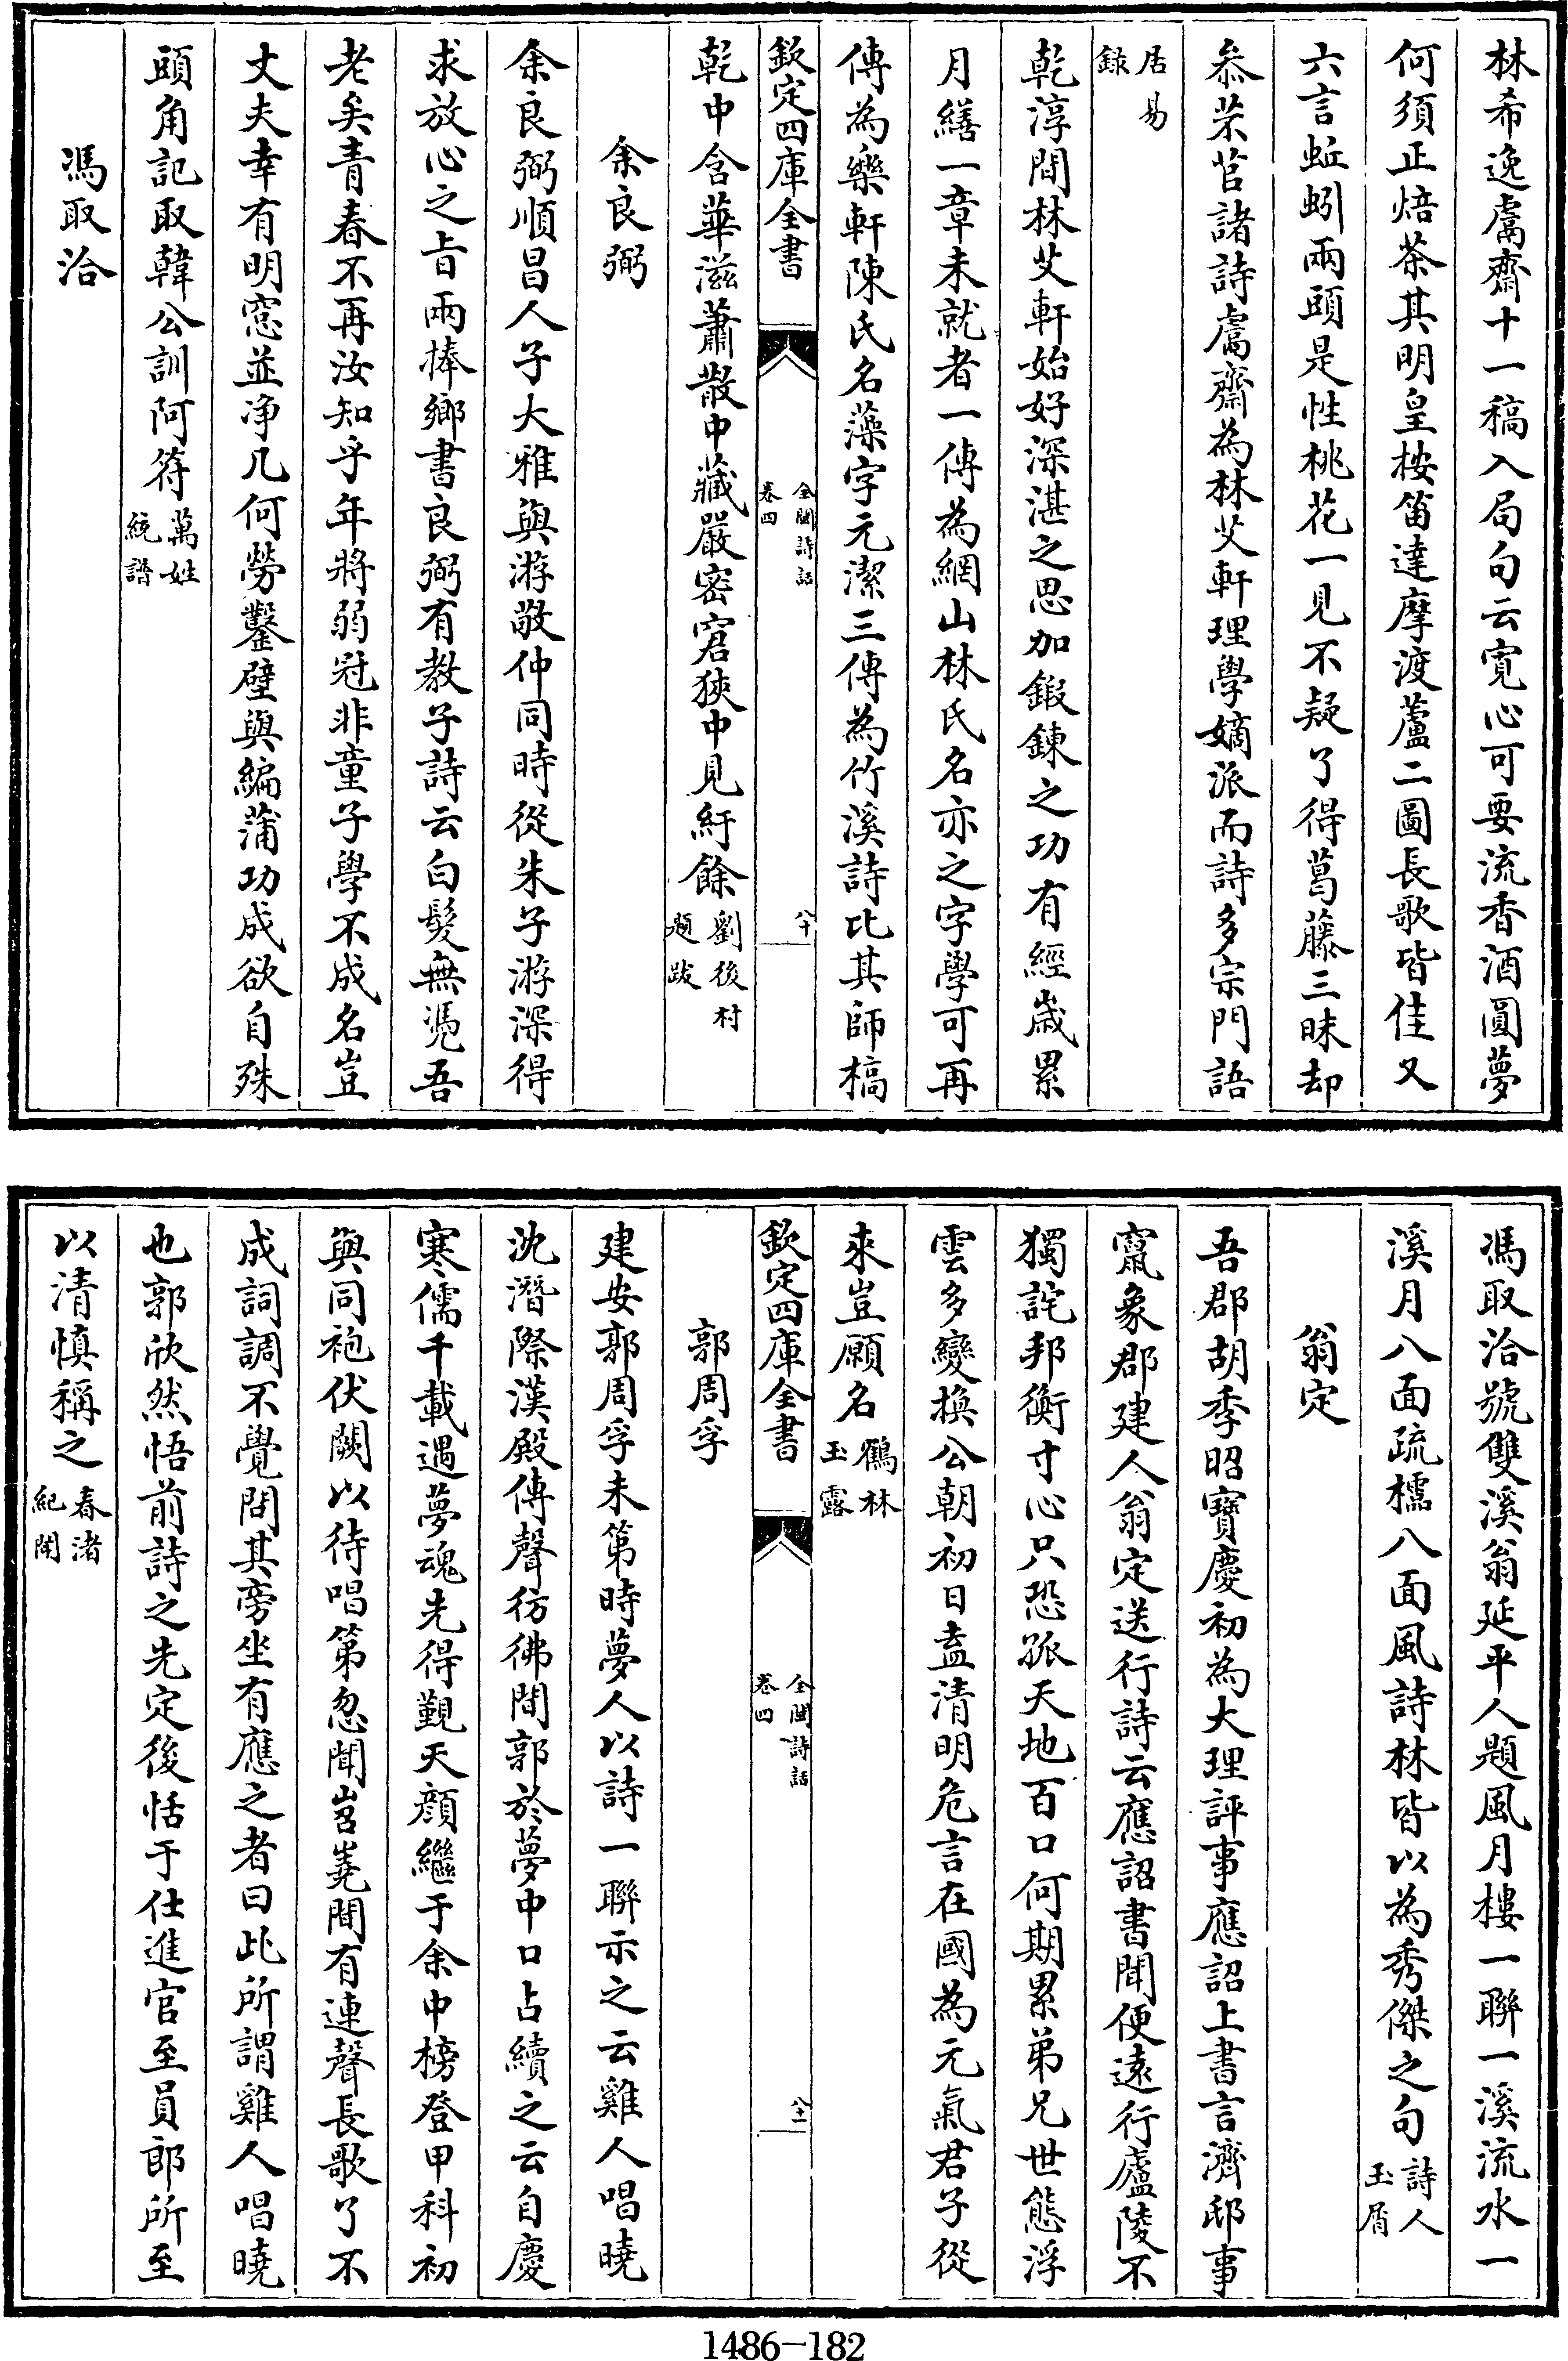 林希逸鬳齋十一稿入局句云寛心可要流香酒圓夢
何須正焙茶其明皇按笛達摩渡蘆二圖長歌皆佳又
六言蚯蚓兩頭是性桃花一見不疑了得葛藤三昧却
叅茶苕諸詩鬳齋為林艾軒理學嫡派而詩多宗門語
居易
録
乾淳間林艾軒始好深湛之思加鍜鍊之功有經歲累
月繕一章未就者一傳為網山林氏名亦之字學可再
傳為樂軒陳氏名藻字元潔三傳為竹溪詩比其師槁
欽定四庫全書
全閩詩話
卷四
八十
乾中含華滋蕭散中藏嚴密窘狹中見紆餘劉後村
題跋
余良弼
余良弼順昌人子大雅與游敬仲同時從朱子游深得
求放心之旨兩捧鄉書良弼有教子詩云白髮無憑吾
老矣青春不再汝知乎年將弱冠非童子學不成名豈
丈夫幸有明窓並净几何勞鑿壁與編蒲功成欲自殊
頭角記取韓公訓阿符萬姓
統譜
馮取洽
馮取洽號雙溪翁延平人題風月樓一聯一溪流水一
溪月八面疏櫺八面風詩林皆以為秀傑之句詩人
玉屑
翁定
吾郡胡季昭寶慶初為大理評事應詔上書言濟邸事
竄象郡建人翁定送行詩云應詔書聞便遠行廬陵不
獨詫邦衡寸心只恐孤天地百口何期累弟兄世態浮
雲多變換公朝初日盍清明危言在國為元氣君子從
來豈願名鶴林
玉露
欽定四庫全書
全閩詩話
卷四
八十一
郭周孚
建安郭周孚未第時夢人以詩一聯示之云雞人唱曉
沈潛際漢殿傳聲彷彿間郭於夢中口占續之云自慶
寒儒千載遇夢魂先得覲天顔繼于余中榜登甲科初
與同袍伏闕以待唱第忽聞岧嶤間有連聲長歌了不
成詞調不覺問其旁坐有應之者曰此所謂雞人唱曉
也郭欣然悟前詩之先定後恬于仕進官至員郎所至
以清慎稱之春渚
紀聞
1486-182